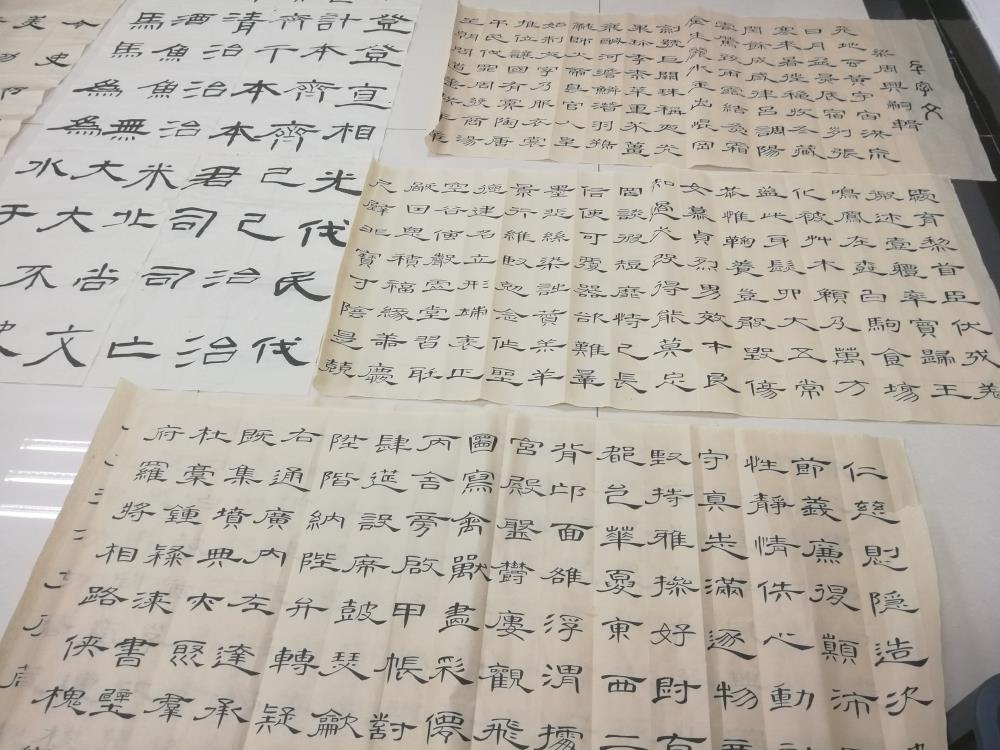 千字文
梁周興嗣輯
天地玄黃宇宙洪荒
日月盈昃辰宿列張
寒來暑往秋收冬藏
閏餘成歲律呂調陽
雲騰致雨露結為霜
金生麗水玉出崐岡
劍號巨闕珠稱夜光
果珍李柰菜重芥薑
河澹鱗潛羽翔
龍師火帝鳥官人皇
始制文字乃服衣裳
推位讓國有虞陶唐
弔民伐罪周發商湯
坐朝問道垂拱
愛育黎首臣伏戎羌
遐邇壹體率賓歸王
鳴鳳在樹白駒食場
化被草木賴及萬方
蓋此身髮四大五常
恭惟鞠養豈敢毀傷
女慕貞烈男效才良
知過必改得能莫忘
罔談彼短靡恃己長
信使可覆器欲難量
墨悲絲染詩贊羔羊
景行維賢剋念作聖
德建名立形端表正
空谷傳聲虛堂習聽
禍因惡積福緣善慶
尺璧非寶寸陰是競
仁慈惻隱造次
節義廉退顛沛
性靜情逸心動
守真志滿逐物意
堅持雅操好爵自
都邑華夏東西二
背邙面雒浮渭據
宮殿盤鬱樓觀飛
圖寫禽獸畫彩僊
丙舍旁啟甲帳對
肆筵設席鼓瑟歈
陞階納陛弁轉疑
右通廣內左達承
既集墳典亦聚群
杜稾鍾隸漆書壁
府羅將相路俠槐
登登宣相光伐民伐
計本齊齊己己治治
齊下本本君司司亡
清治治治米北尚文
酒魚魚無大大不史
馬馬為為水于